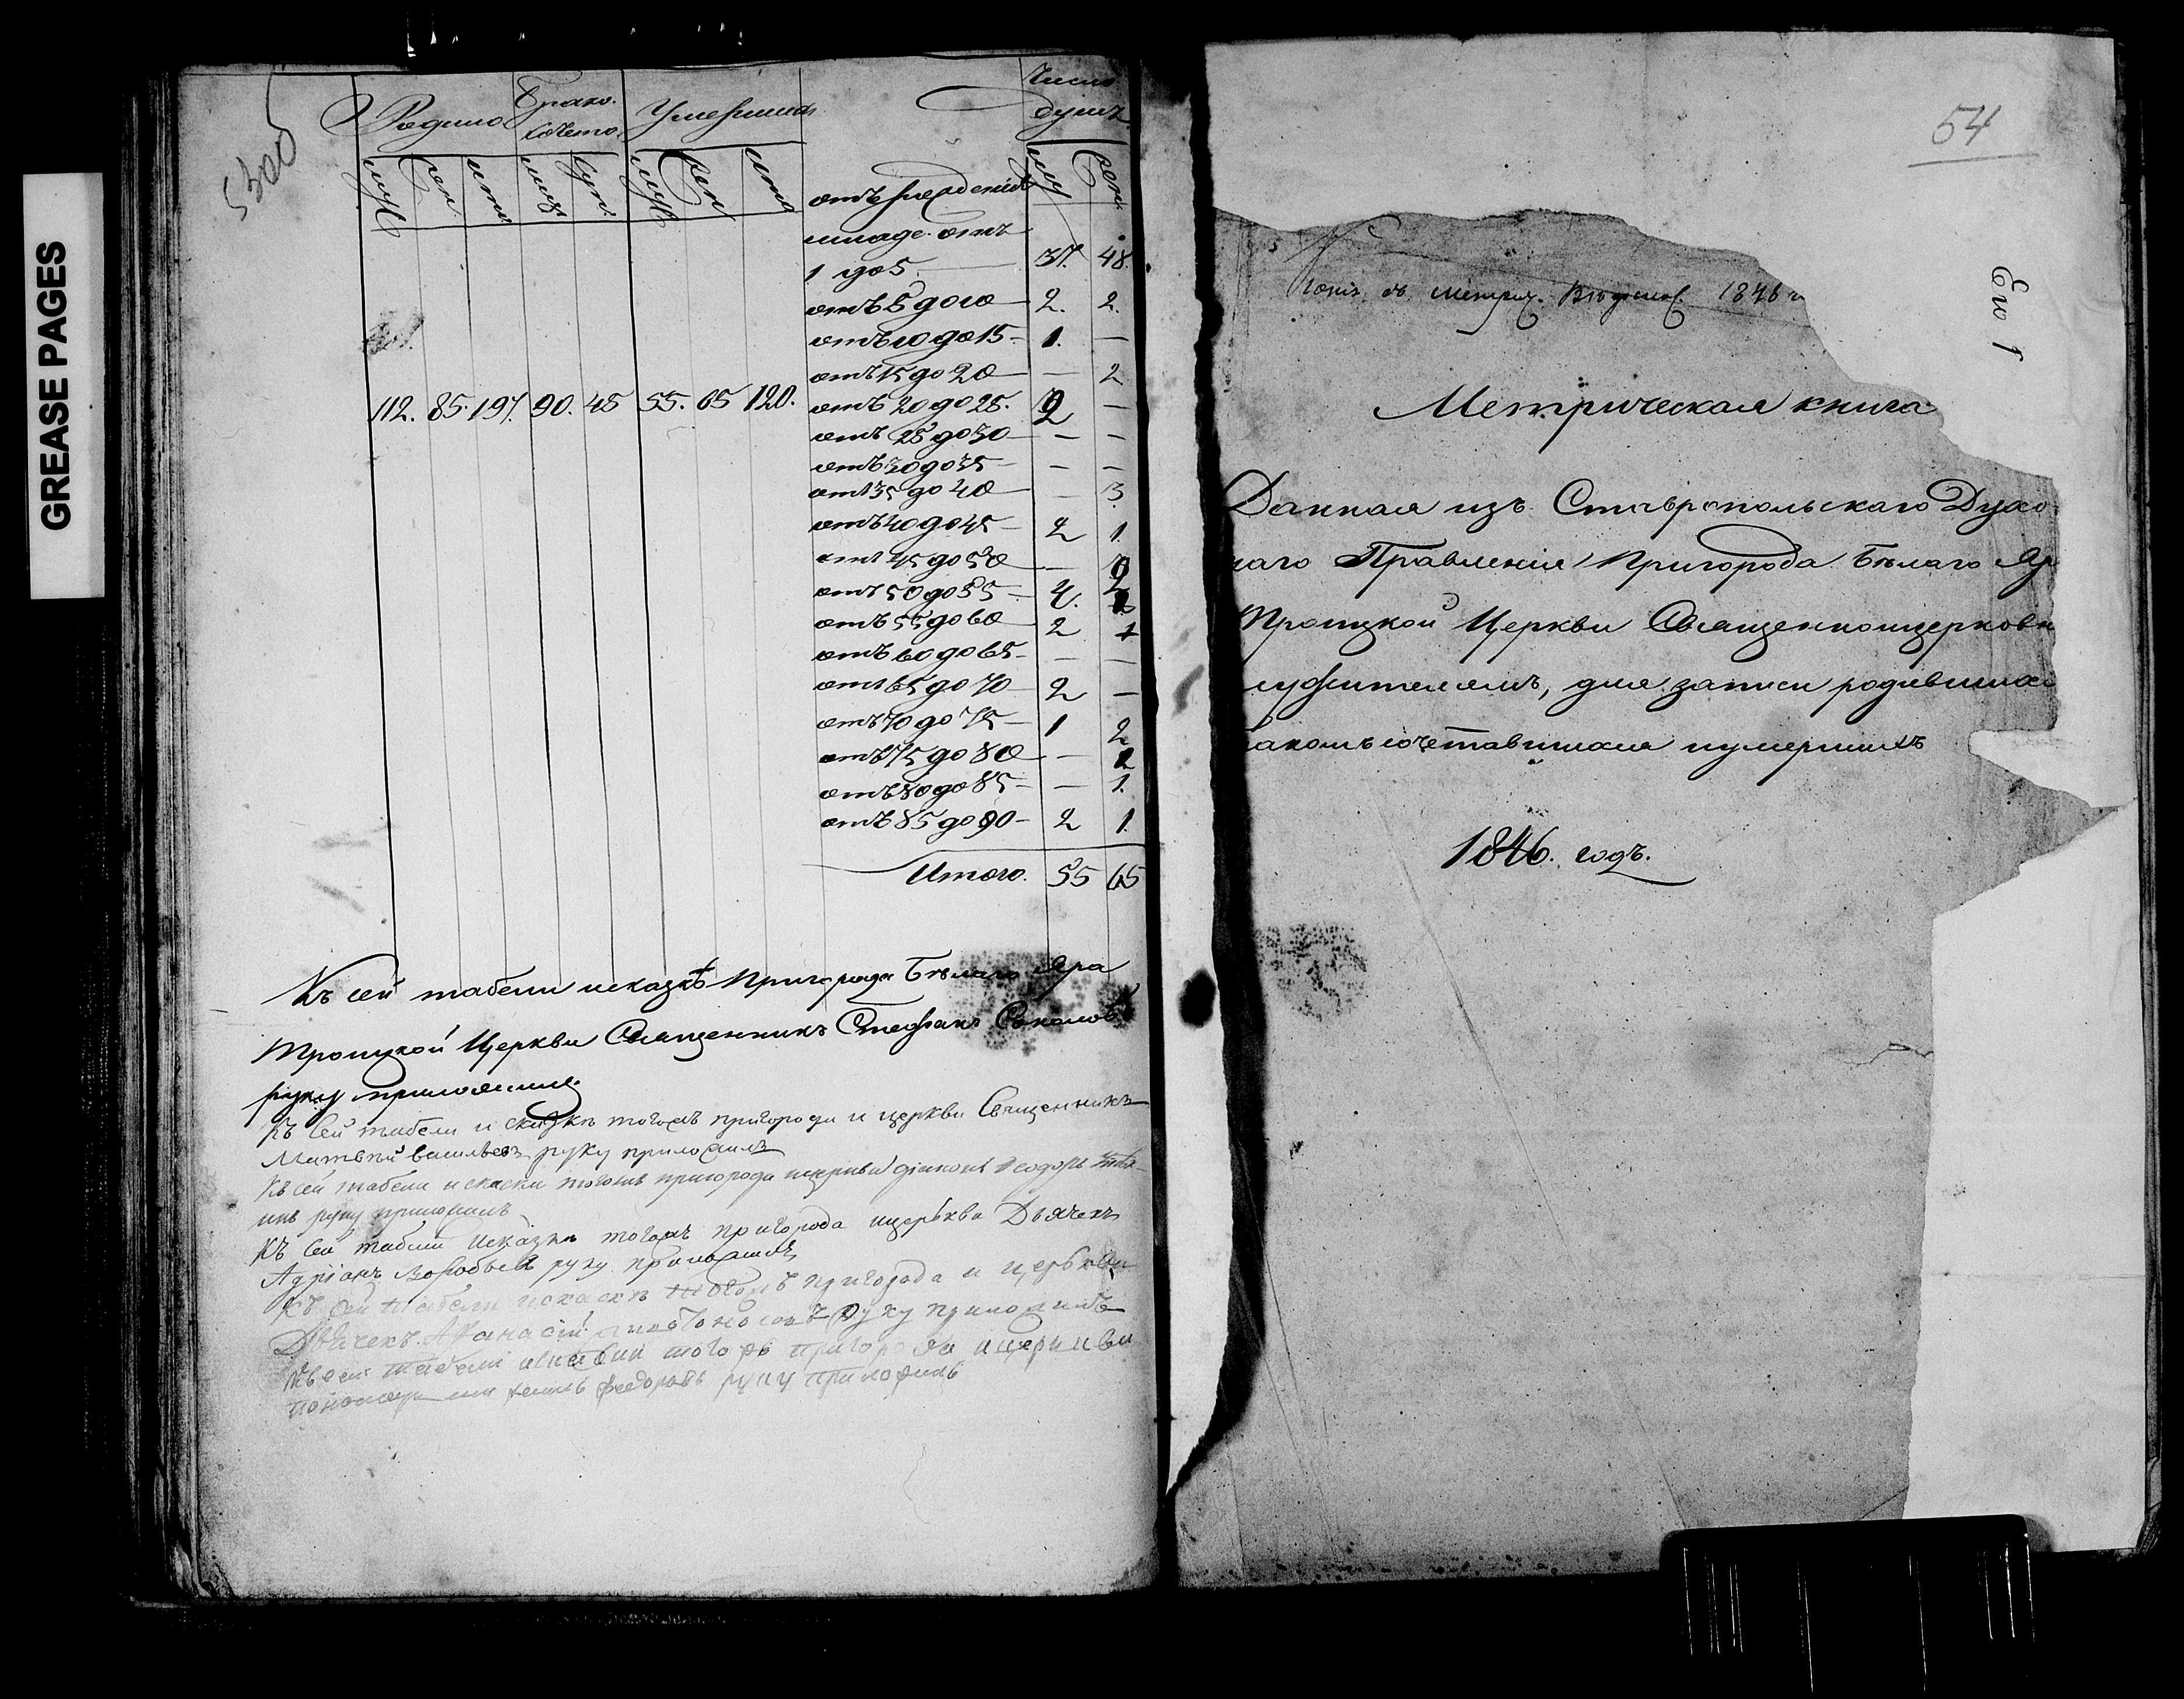 GREASE PAGES
5300
Родило Брако. сочета. Умершихъ Число душъ
муж жен итог муж суп. муж жен ито му жен.
отъ рожденія
младе. отъ
1 до 5. 37. 48.
отъ 5 до 10 2. 2.
отъ 10 до 15 1. —
отъ 15 до 20 — 2
112. 85. 197. 90. 45 55. 65 120. отъ 20 до 25. 2 —
отъ 25 до 30 — —
отъ 30 до 35 — —
от 35 до 40 — 3
отъ 40 до 45 2 1.
отъ 45 до 50 —
отъ 50 до 55
отъ 55 до 60 2
отъ 60 до 65 — —
отъ 65 до 70 2 —
отъ 70 до 75 1 2
отъ 75 до 80 — 2
отъ 80 до 85 — 1.
отъ 85 до 90 2 1.
Итого. 55 65
Къ сей табели исказкѣ Пригорода Бѣлаго Яра
Троицкой Церкви Священникъ Стефанъ Соколовъ
руку приложилъ.
Къ Сей табели и сказкѣ тогожъ пригорода и церкви Священникъ
Матвѣй Васильевъ руку приложилъ
Къ сей табели и скаски тогожъ пригорода ицеркви діаконъ Ѳеодоръ
руку приложилъ
Къ Сей табели исказкѣ тогожъ пригорода ицерькви Дьячекъ
Адріанъ Воробьевъ руку приложилъ
Къ сей табели искаскѣ тогожъ пригорода и церькви
Дьячекъ Аѳанасій руку приложилъ
Къ сей табели искаски тогожъ пригорода ицеркви
пономарь Федоровъ руку приложилъ
54
Копіи съ Метрич. 1846 г
Метрическая книга
Данная изъ Ставропольскаго Духо
наго Правленія Пригорода Бѣлаго Яр
Троицкой Церкви Священноцерковн
служителямъ, для записи родившихс
ракомъ сочетавшихся иумершихъ
1846. годъ.